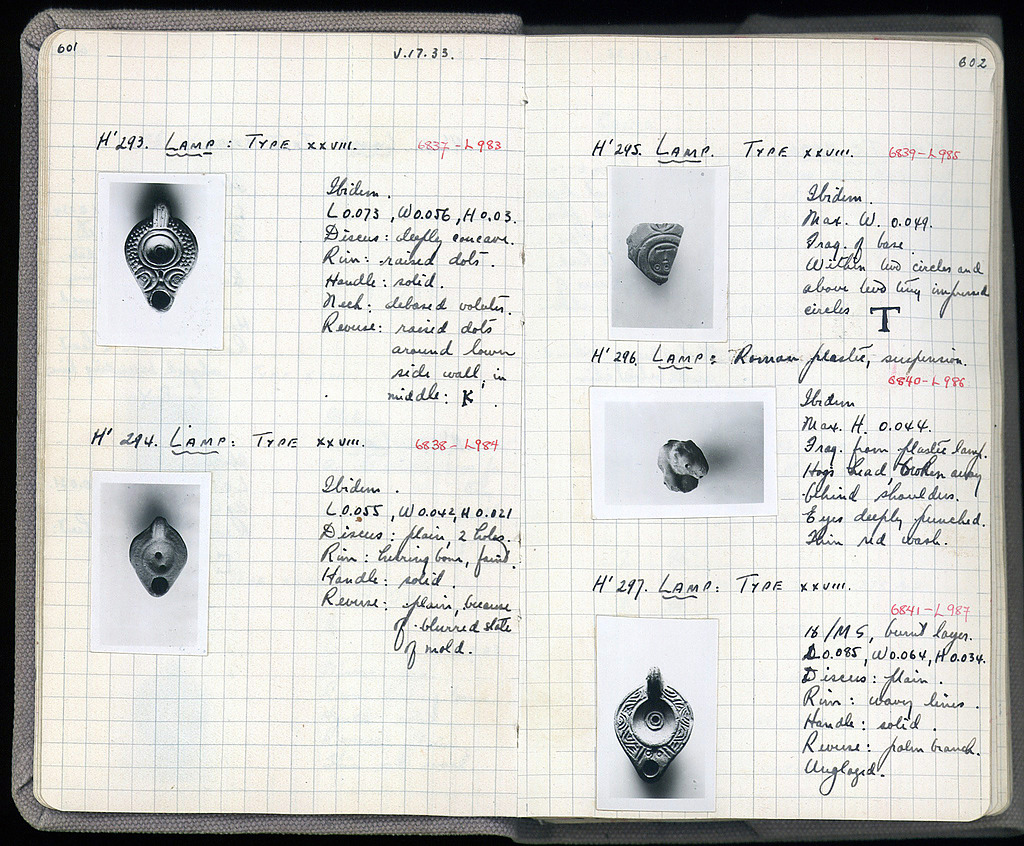 601
V.17.33.
H' 293. LAMP: TYPE XXVIII. 6837-L983
Ibidem.
L 0.073, W 0.056, H 0.03.
Discus: deeply concave.
Rim: raised dots.
Handle: solid.
Neck: debased volutes.
Reverse: raised dots
around lower
side wall, in
middle: K.
H' 294. LAMP: TYPE XXVIII. 6838-L984
Ibidem.
L 0.055, W 0.042, H 0.021
Discus: plain, 2 holes.
Rim: herring bone, faint.
Handle: solid.
Reverse: plain, because
of blurred state
of mold.
602
H' 295. LAMP. TYPE XXVIII. 6839-L985
Ibidem.
Max. W. 0.049.
Frag. of base.
Within two circles and
above two tiny impressed
circles T
H' 296. LAMP: Roman plastic, suspension.
6840-L986
Ibidem
Max. H. 0.044.
Frag. from plastic lamp.
Hogs head, broken away
behind shoulders.
Eyes deeply punched.
Thin red wash.
H' 297. LAMP: TYPE XXVIII.
6841-L987
16/MS, burnt layer.
L 0.085, W 0.064, H 0.034.
Discus: plain.
Rim: wavy lines.
Handle: solid.
Reverse: palm branch.
Unglazed.